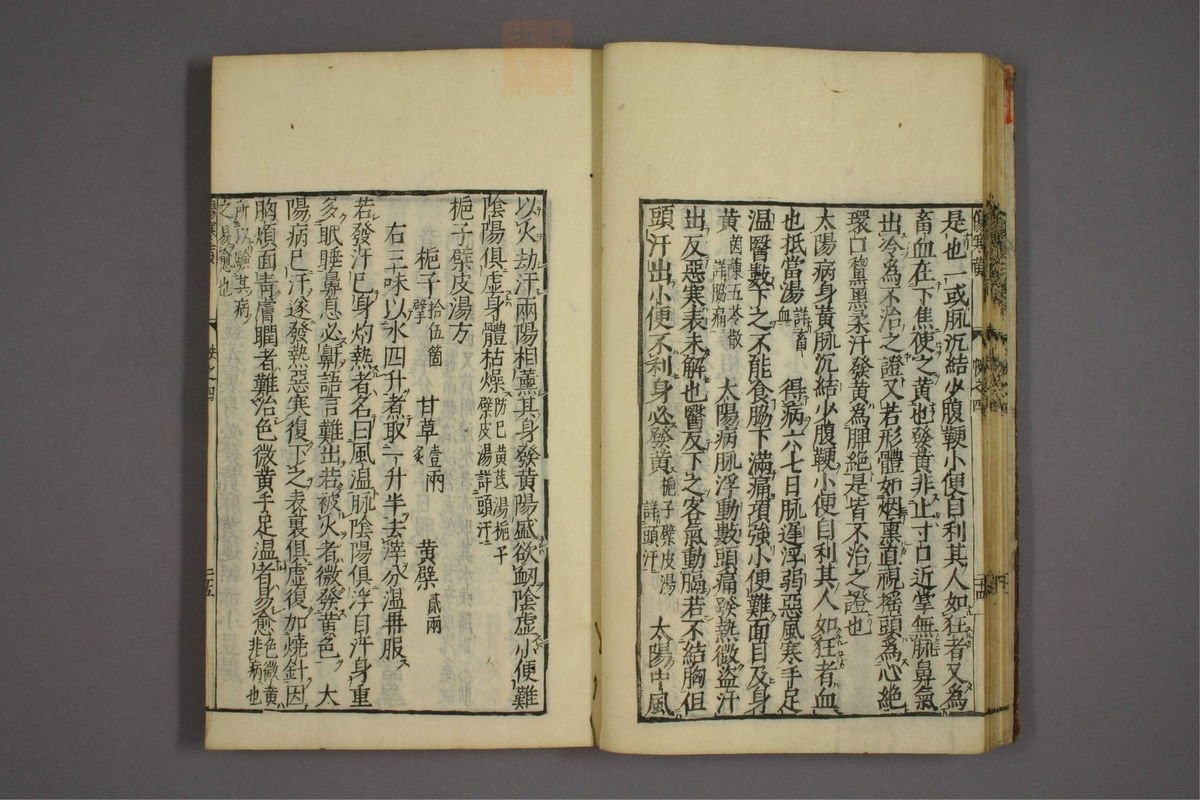 是也一或脈沉結少腹鞕小便自利其人如狂者又為
畜血在下焦使之黃也發黃非止寸口近掌無脈鼻氣
出冷為不治之證又若形體如烟熏直視搖頭為心絶
環口黧黑柔汗發黃為脾絶是皆不治之證也
太陽病身黃脈沉結少腹鞕小便自利其人如狂者血
也抵當湯詳畜血 得病六七日脈遲浮弱惡風寒手足
温醫數下之不能食脇下滿痛項強小便難面目及身
黃茵蔯五苓散詳脇痛 太陽病脈浮動數頭痛發熱微盜汗
出反惡寒表未解也醫反下之客氣動膈若不結胸但
頭汗出小便不利身必發黃梔子檗皮湯詳頭汗 太陽中風
以火劫汗兩陽相薰其身發黃陽盛欲衂陰虛小便難
陰陽俱虛身體枯燥防巳黃芪湯梔子檗皮湯詳頭汗
梔子檗皮湯方
梔子拾伍箇擘 甘草壹兩炙 黃檗貳兩
右三味以水四升煮取一升半去滓分温再服
若發汗巳身灼熱者名曰風温脈陰陽俱浮自汗身重
多眠睡鼻息必鼾語言難出若被火者微發黃色 大
陽病巳汗遂發熱惡寒復下之表裏俱虛復加燒針因
胸煩面青膚瞤者難治色微黃手足温者易愈色微黃非病也
所以驗其病之易愈也